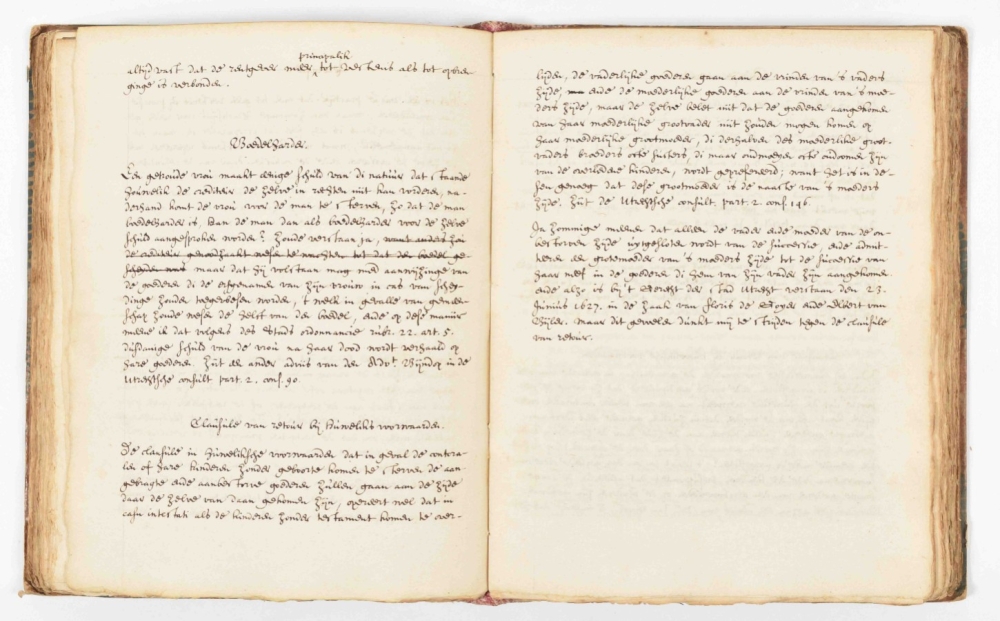 principalik
altijd vast dat de rentgever meer tot rechens als tot
ginge is verbonden.
Boedelharder.
Een getroude vrou maakt enige schuld van di natuir dat staande
houwelik de crediteur de helve in rechten uit kan vorderen, na-
derhand komt de vrou voor de man te sterven, zo dat de man
boedelharder is, kan de man dan als boedelharder voor de helve
schuld aangesproken worden? zoude verstaan ja,
de crediteur genootzaakt wesen te wachten tot dat de boedel ge-
scheiden was maar dat hij volstaan mag met aanwijzinge van
de goederen di de erfgenamen van zijn vrouw in cas van schey-
dinge zouden toegewesen worden, 't welk in gevalle van gemeen-
schap zoude wesen de helft van den boedel, ende op dese manier
meene ik dat volgens des Stads ordonnancie rubr. 22. art. 5.
dusdanige schuld van de vrou na haar dood wordt verhaald op
hare goederen. Zut de ander advus van den Advt. in de
Utrechtsche consult part. 2. cons. 90.
Clausule van retour bij huweliks voorwaarden.
De clausule in huweliksche voorwaarden dat in geval de contra-
len of hare kinderen zonder geboorte komen te sterven de aan-
gebragte ende aanbestorve goederen zullen gaan aan de zijde
daar de zelve van daan gekomen zijn, opereert wel dat in
casu intestati als de kinderen zonder testament komen te over-
lijden, de vaderlijke goederen gaan aan de vrinden van 's vaders
zijde, ende de moederlijke goederen aan de vrinden van 's moe-
ders zijde, maar de zelve belet niit dat de goederen aangekomen
van haar moederlijke grootvader niit zouden mogen komen op
haar moederlijke grootmoeder, di derhalven des moederlike groot-
vaders broeders ofte susters, di maar oudmoeyen ofte oudomen zijn
van de overledene kinderen, wordt geprefereerd; want het is in de-
sen genoeg dat dese grootmoeder is de naaste van 's moeders
zijde. Zut de Utrechtsche consult. part. 2. cons. 146.
Zommige meenen dat alleen de vader ende moeder van de on-
bestorven zijde uytgesloten wordt van de successie, ende admit-
teren de grotemoeder van 's moeders zijde tot de successie van
haar neef in de goederen di hem van zijn vader zijn aangekomen
ende alzo is bij 't Gerecht der Stad Utrecht verstaan den 23.
Junius 1627. in de zaak van Floris de ende Elbert van
maar dit gewesen dunkt mij te strijden tegen de clausule
van retour.